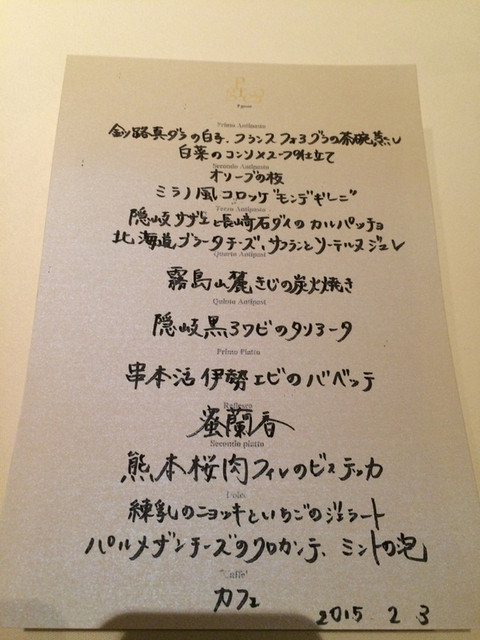 Primo Antipasto
釧路真ダラの白子、フランスフォアグラの茶碗蒸し
白菜のコンソメスープ仕立て
Secondo Antipasto
オリーブの枝
ミラノ風コロッケ"モンデギレニ"
Terzo Antipasto
隠岐サザエと長崎石ダイのカルパッチョ
北海道ブラータチーズ、サフランとソーテルヌジュレ
Quarto Antipast
霧島山麓きじの炭火焼き
Quinto Antipast
隠岐黒アワビのタリオータ
Primo Piatto
串本活伊勢エビのバベッテ
蜜蘭香
Secondo piatto
熊本桜肉フィレのビステッカ
Dolce
練乳のニョッキといちごのジェラート
パルメザンチーズのクロカンテ、ミントの泡
Caffe'
カフェ
2015 2 3